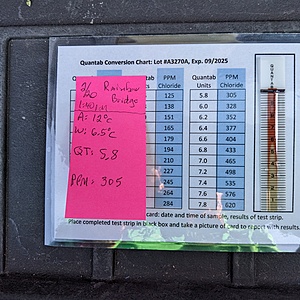 Quantab Conversion Chart: Lot #A3270A, Exp. 09/2025
Rainbow
Bridge
A: 12°c
W: 6.5°c
QT: 5.8
PPM: 305
ntab PPM Quantab PPM
Chloride Units Chloride
125 5.8 305
138 6.0 328
151 6.2 352
164 6.4 377
179 6.6 404
194 6.8 433
210 7.0 465
227 7.2 498
245 7.4 535
264 7.6 576
284 7.8 620
QUANTAB
card: date and time of sample, results of test strip.
Place completed test strip in black box and take a picture of card to report with results.